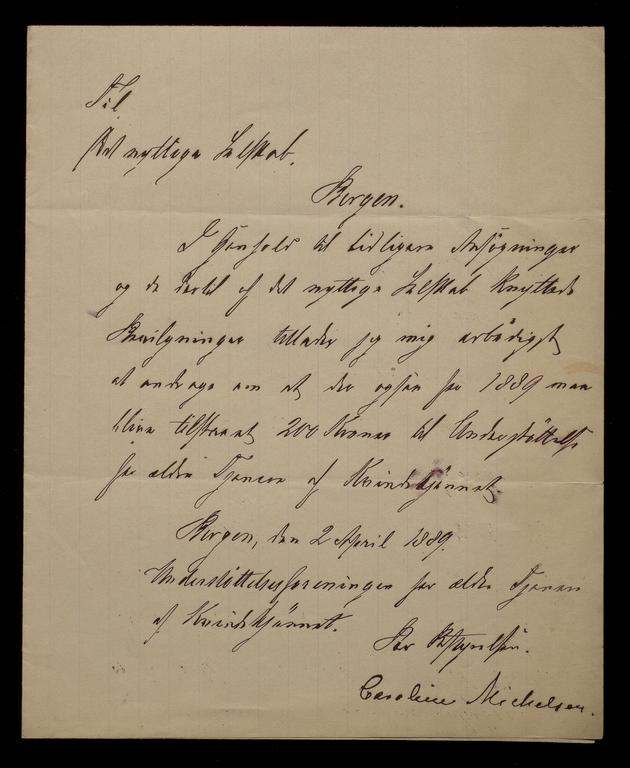 Til
Det nyttige Selskab.
Bergen.
I Henhold til tidligere Ansøgninger
og de dertil af det nyttige Selskab knyttede
Bevilgninger tillader jeg mig ærbødigst
at andrage om at der ogsaa for 1889 maa
blive tilstaaet 200 Kroner til Understøttelse
for ældre Tjenere af Kvindekjønnet.
Bergen, den 2 April 1889.
Understøttelsesforeningen for ældre Tjenere
af Kvindekjønnet.
For Bestyrelsen.
Caroline Michelsen.